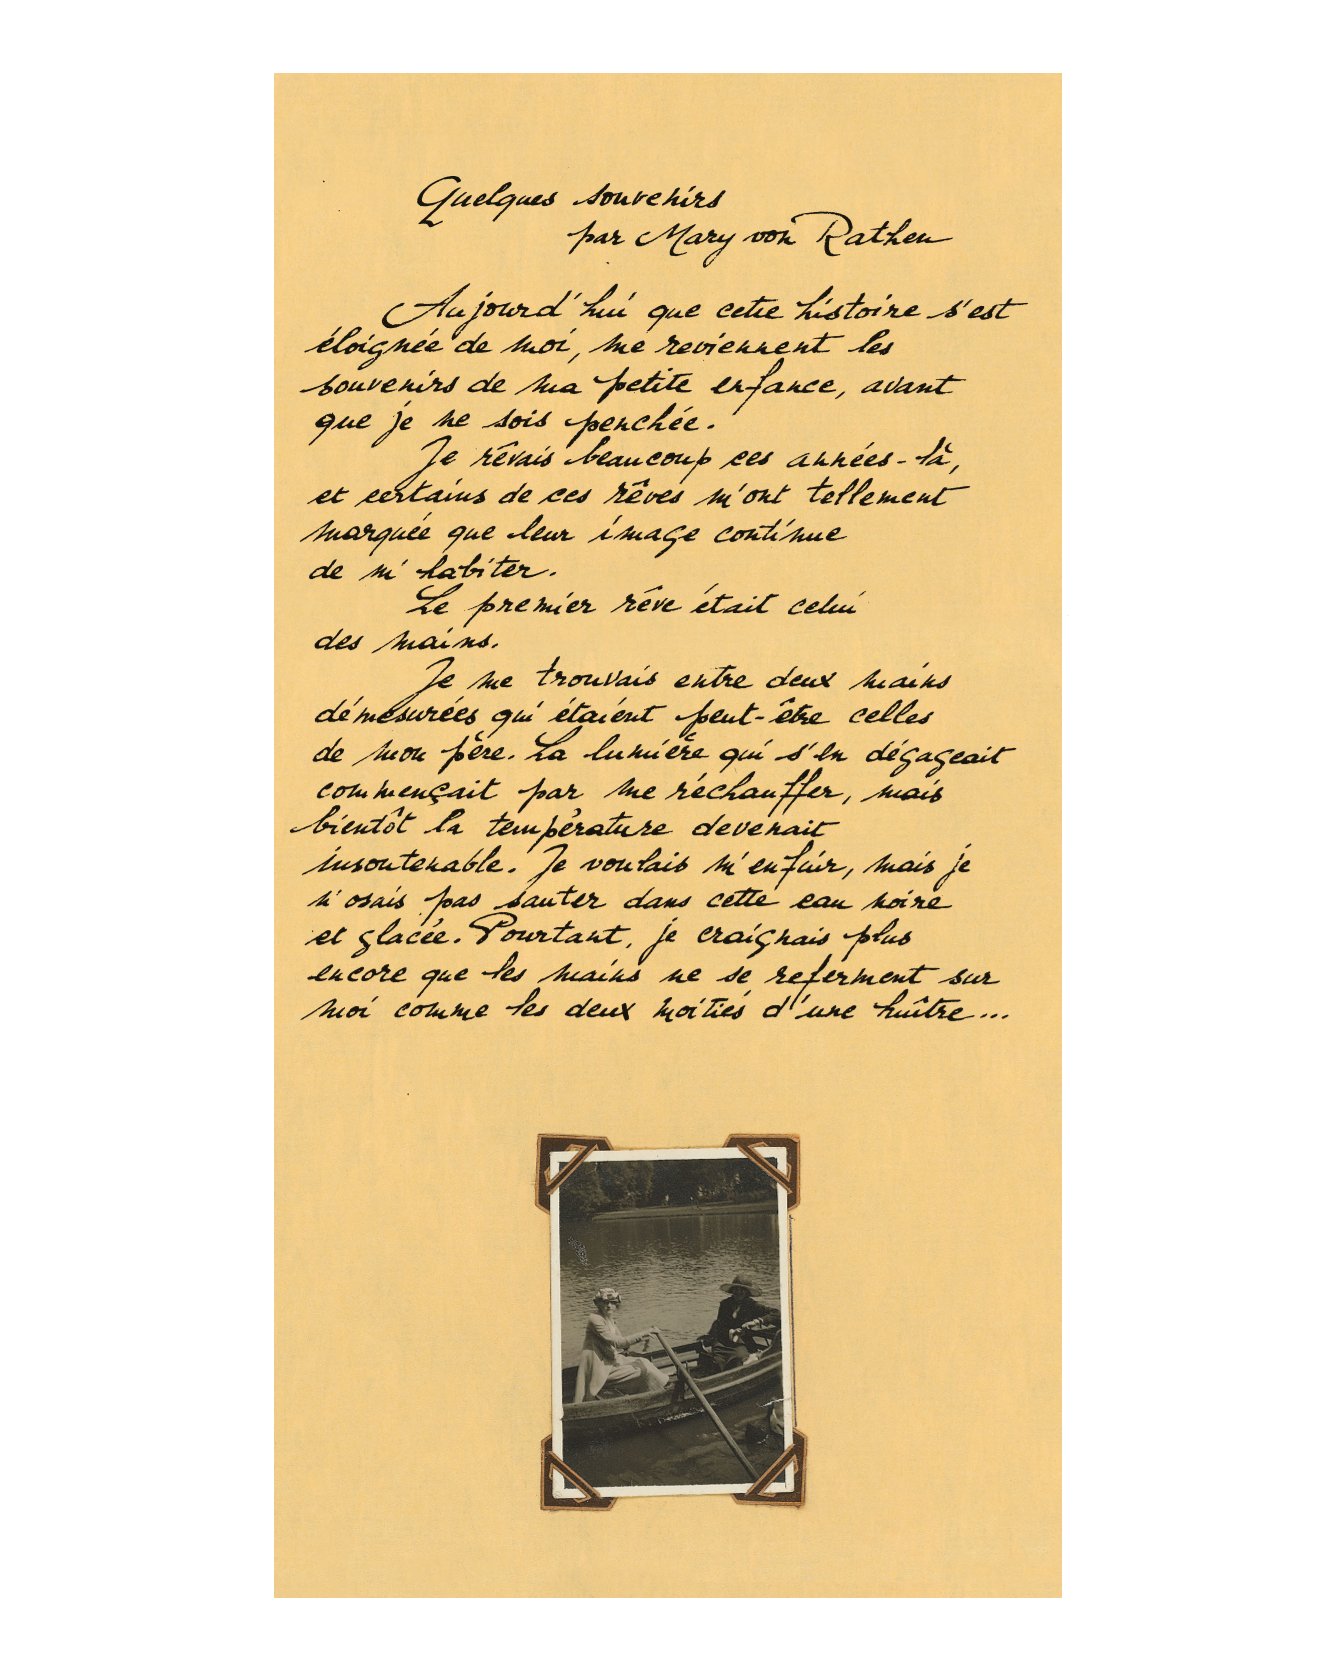 Quelques souvenirs
par Mary von Rathen
Aujourd'hui que cette histoire s'est
éloignée de moi, me reviennent les
souvenirs de ma petite enfance, avant
que je ne sois penchée.
Je rêvais beaucoup ces années-là,
et certains de ces rêves m'ont tellement
marquée que leur image continue
de m'habiter.
Le premier rêve était celui
des mains.
Je me trouvais entre deux mains
démesurées qui étaient peut-être celles
de mon père. La lumière qui s'en dégageait
commençait par me réchauffer, mais
bientôt la température devenait
insoutenable. Je voulais m'enfuir, mais je
n'osais pas sauter dans cette eau noire
et glacée. Pourtant, je craignais plus
encore que les mains ne se referment sur
moi comme les deux moitiés d'une huître...